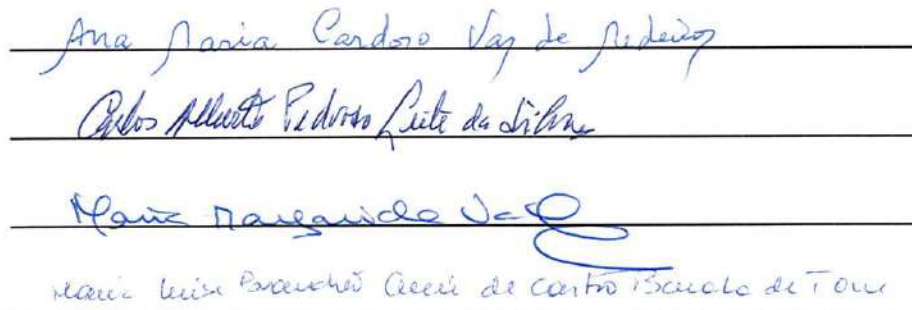 Ana Maria Cardoso Vaz de Medeiros
Carlos Alberto Pedroso Leite da Silva
Maria Margarida Vaz
Maria Luisa de Castro de